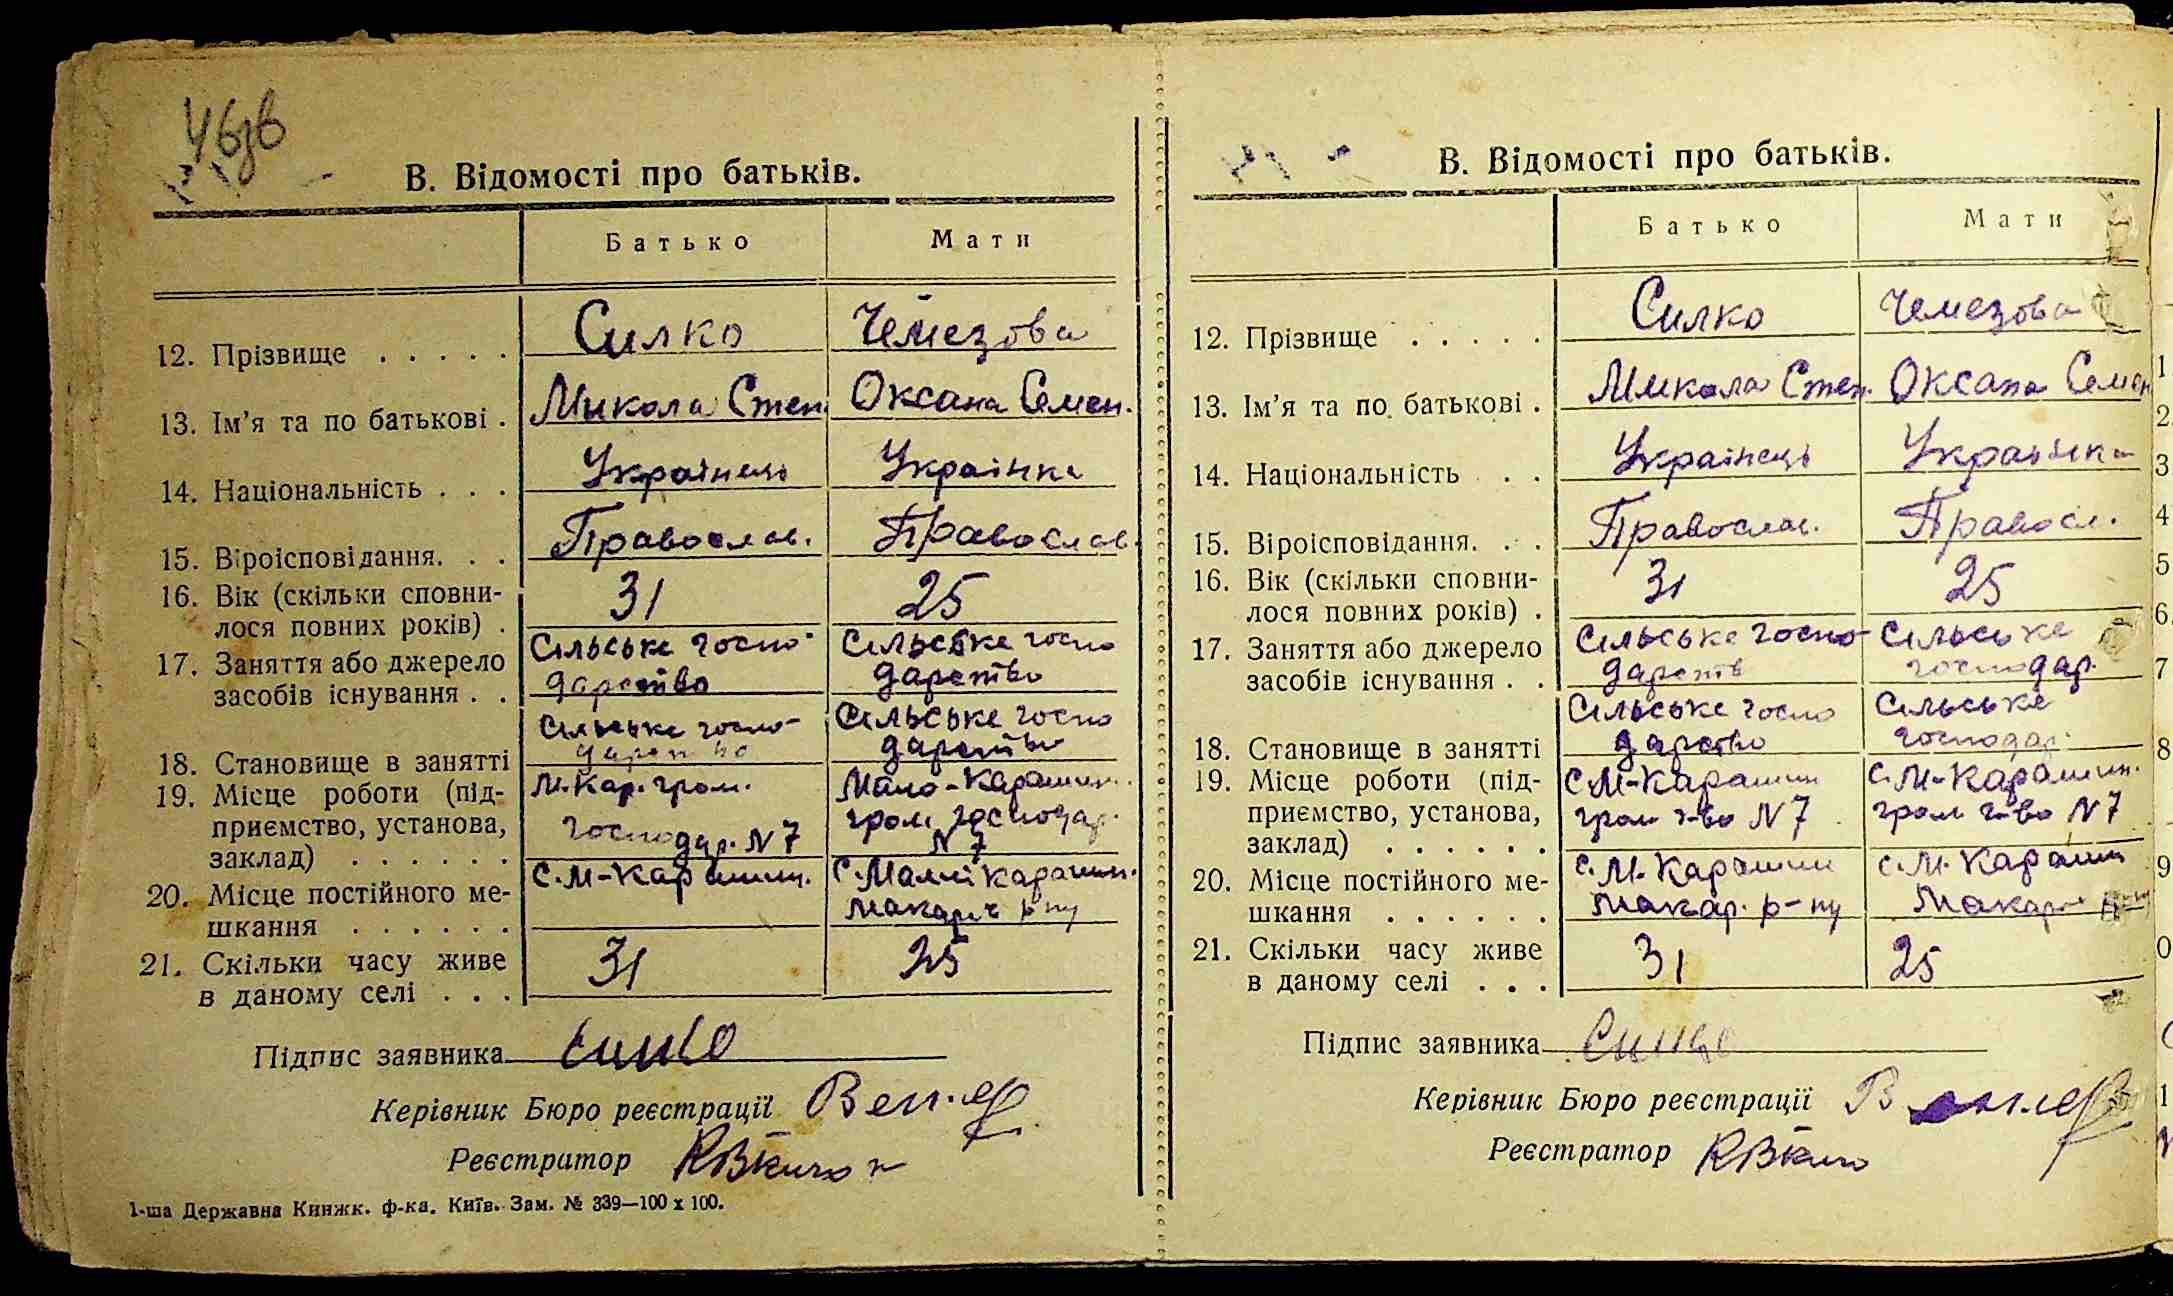 В. Відомості про батьків.
Батько Мати
12. Прізвище . . . . . Силко Чемезова
13. Ім'я та по батькові . Микола Степ. Оксана Семен.
14. Національність . . . Українець Українка
15. Віроісповідання. . . Православ. Православ.
16. Вік (скільки сповни-
лося повних років) . 31 25
17. Заняття або джерело Сільське госпо- Сільське госпо
засобів існування . . дарство дарство
Сільське госпо- Сільське госпо
18. Становище в занятті дарство дарство
19. Місце роботи (під- М.Кар. гром. Мало-Карашин.
приємство, установа, господар. N 7 гром господар.
заклад) . . . . . . N 7
20. Місце постійного ме- с.М-Карашин. с.Малий Карашин.
шкання . . . . . . Макарів р-ну
21. Скільки часу живе 31 25
в даному селі . . .
Підпис заявника Силко
Керівник Бюро реєстрації
Реєстратор
1-ша Державна Книжк. ф-ка. Київ. Зам. № 339—100 х 100.
В. Відомості про батьків.
Батько Мати
12. Прізвище . . . . . Силко Чемезова
13. Ім'я та по батькові . Микола Степ. Оксана Семен
14. Національність . . Українець Українка
15. Віроісповідання. . . Православ. Правосл.
16. Вік (скільки сповни-
лося повних років) . 31 25
17. Заняття або джерело Сільське госпо- Сільське
засобів існування . . дарств господар.
Сільське госпо Сільське
18. Становище в занятті дарство господар.
19. Місце роботи (під- с М-Карашин с.М-Карашин.
приємство, установа, гром г-во N 7 гром г-во N 7
заклад) . . . . . .
20. Місце постійного ме- с.М. Карашин с.М. Карашин
шкання . . . . . . Макар. р-ну Макар
21. Скільки часу живе 31 25
в даному селі . . .
Підпис заявника Силко
Керівник Бюро реєстрації
Реєстратор